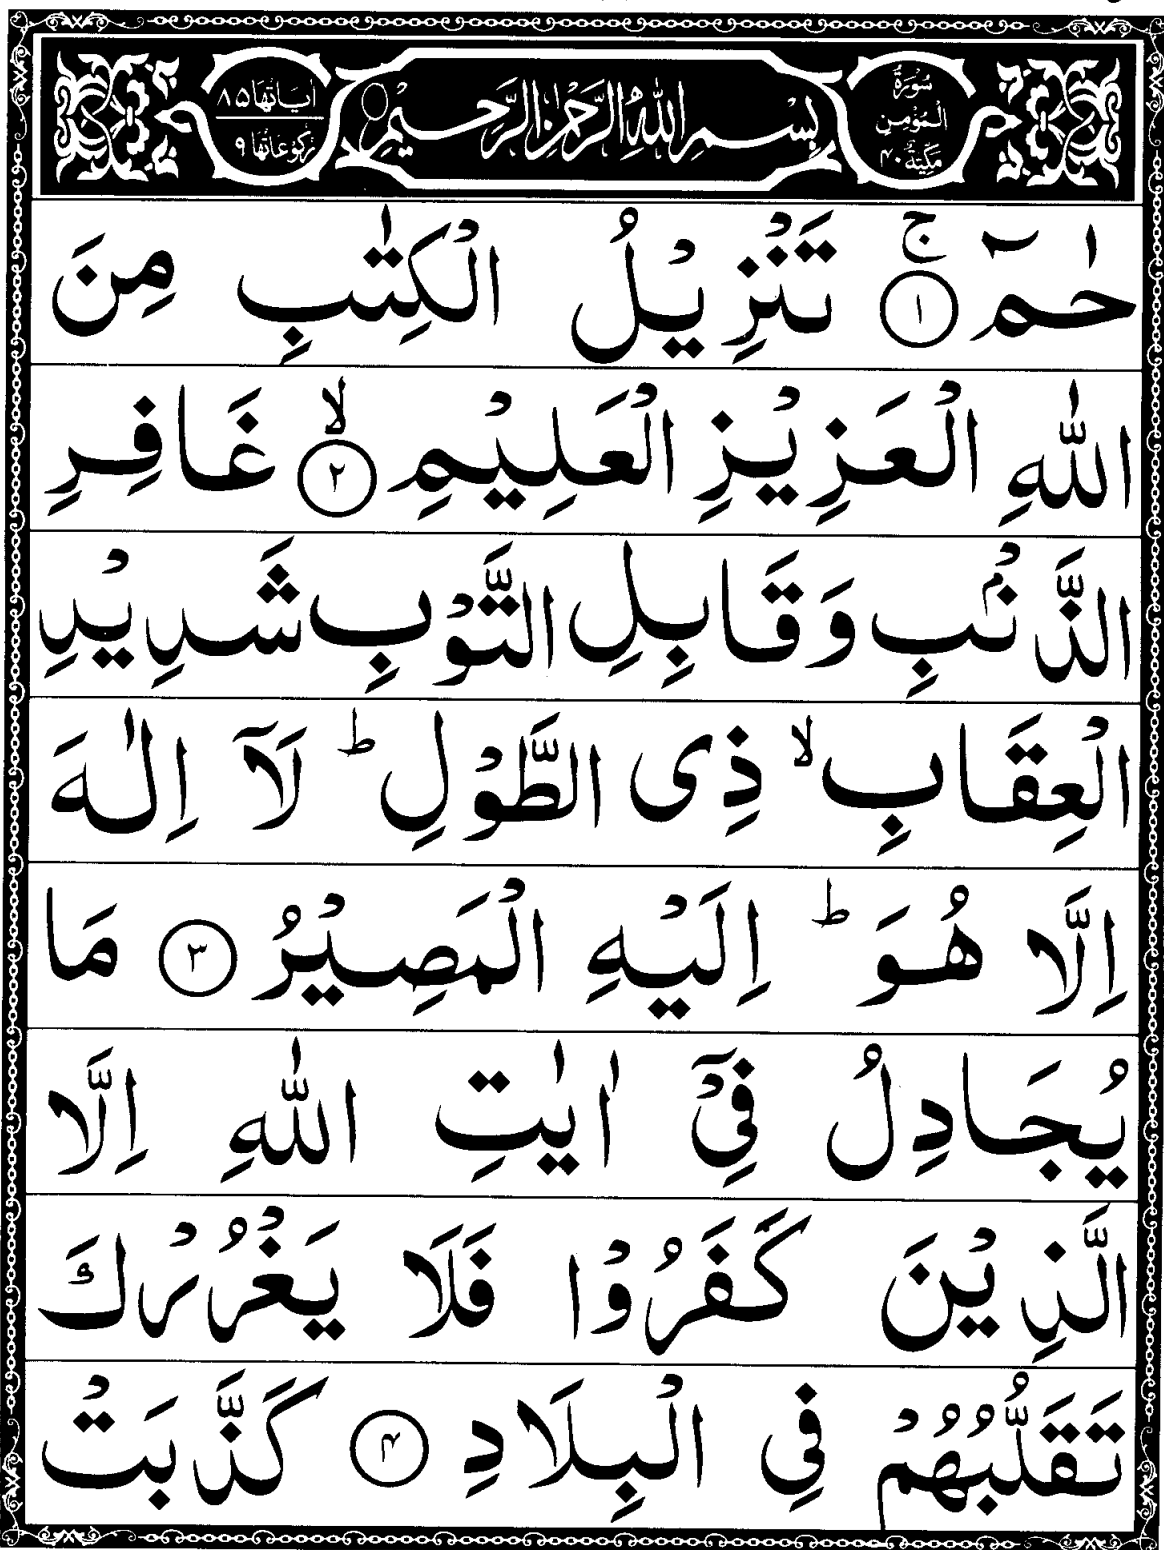 سُوْرَةُ
الْمُؤْمِنِ
مَكِّيَّةٌ ٤٠
بِسْمِ اللّٰهِ الرَّحْمٰنِ الرَّحِيْمِ
اٰيَاتُهَا ٨٥
رُكُوْعَاتُهَا ٩
حٰمٓ ۚ ۝١ تَنْزِيْلُ الْكِتٰبِ مِنَ
اللّٰهِ الْعَزِيْزِ الْعَلِيْمِ ۙ ۝٢ غَافِرِ
الذَّنْۢبِ وَقَابِلِ التَّوْبِ شَدِيْدِ
الْعِقَابِ ۙ ذِى الطَّوْلِ ؕ لَآ اِلٰهَ
اِلَّا هُوَ ؕ اِلَيْهِ الْمَصِيْرُ ۝٣ مَا
يُجَادِلُ فِىْۤ اٰيٰتِ اللّٰهِ اِلَّا
الَّذِيْنَ كَفَرُوْا فَلَا يَغْرُرْكَ
تَقَلُّبُهُمْ فِى الْبِلَادِ ۝٤ كَذَّبَتْ